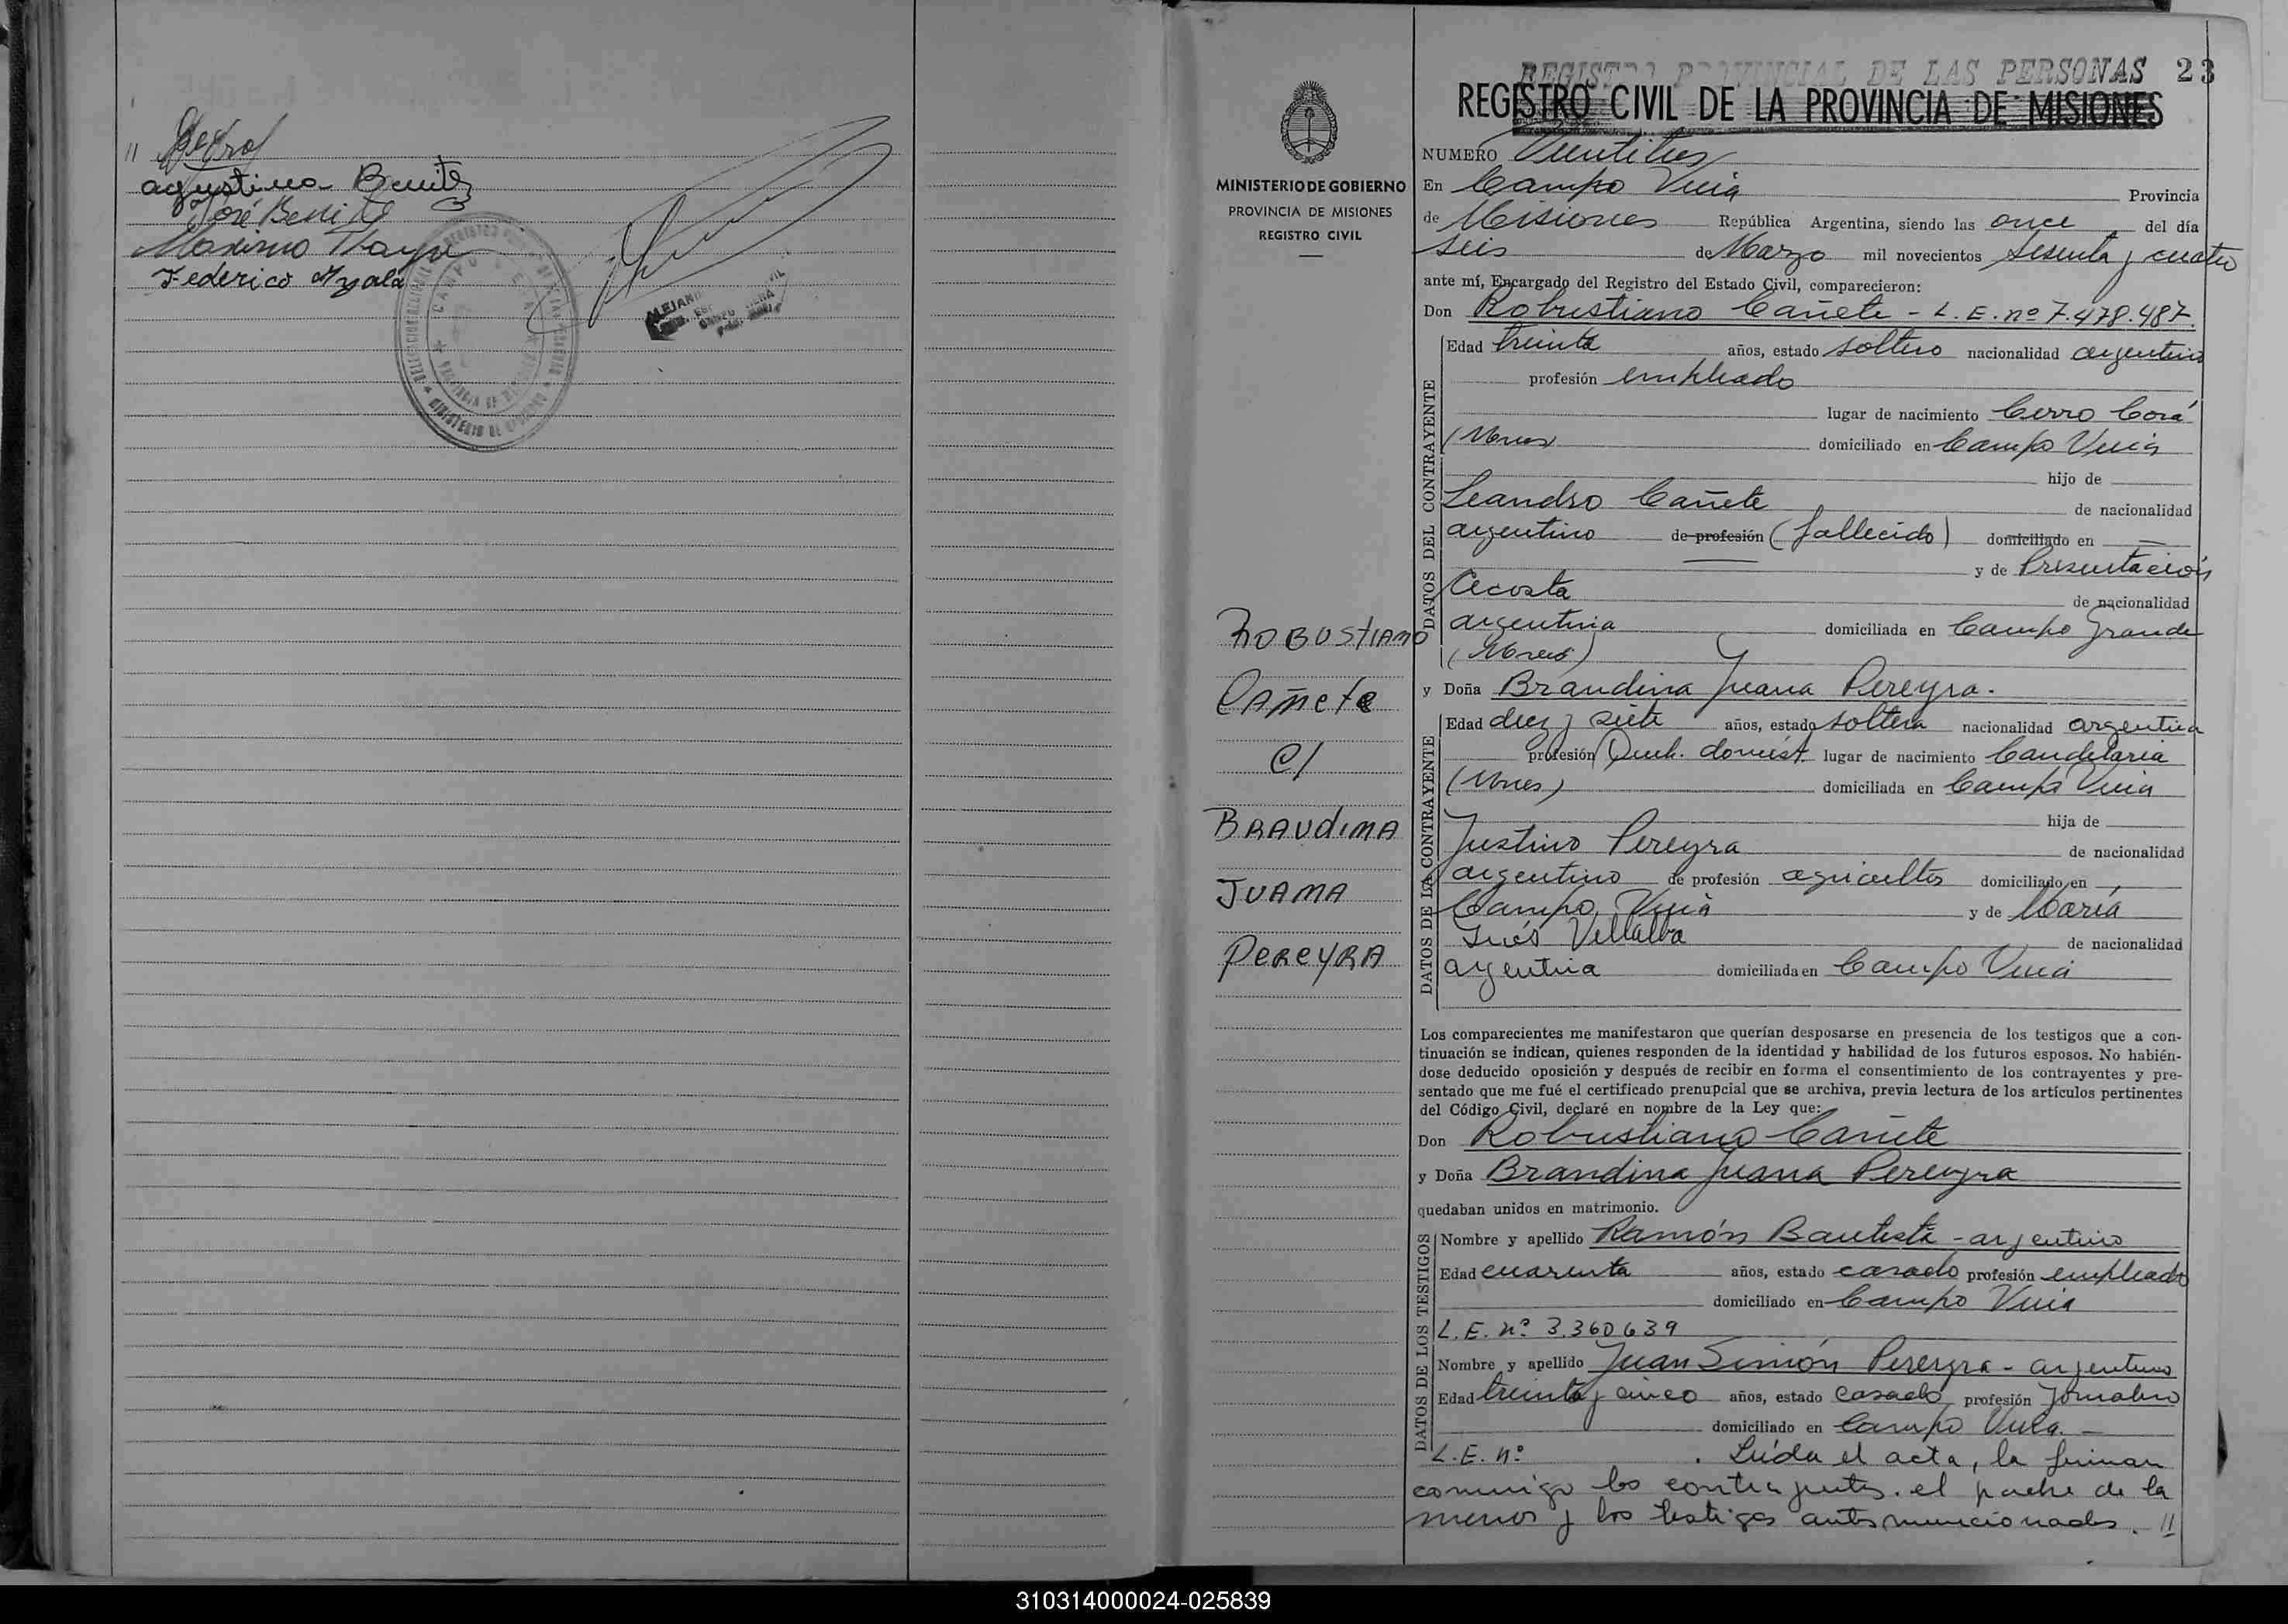 Agustina Benitez
José Benitez
Maximo
Federico Ayala
REGISTRO PROVINCIAL DE LAS PERSONAS 23
REGISTRO CIVIL DE LA PROVINCIA DE MISIONES
MINISTERIO DE GOBIERNO
PROVINCIA DE MISIONES
REGISTRO CIVIL
ROBUSTIANO
CAÑETE
C/
BRAUDINA
JUANA
PEREYRA
NUMERO Veintitres
En Campo Viera Provincia
de Misiones República Argentina, siendo las once del día
seis de Marzo mil novecientos sesenta y cuatro
ante mí, Encargado del Registro del Estado Civil, comparecieron:
Don Robustiano Cañete - L. E. nº 7.478.487.
DATOS DEL CONTRAYENTE
Edad treinta años, estado soltero nacionalidad argentino
profesión empleado
lugar de nacimiento Cerro Corá
(Mnes) domiciliado en Campo Viera
hijo de
Leandro Cañete de nacionalidad
argentino de profesión (fallecido) domiciliado en —
y de Presentación
Acosta de nacionalidad
argentina domiciliada en Campo Grande
(Mnes)
y Doña Brandina Juana Pereyra.
DATOS DE LA CONTRAYENTE
Edad diez y siete años, estado soltera nacionalidad argentina
profesión Queh. domést. lugar de nacimiento Candelaria
(Mnes) domiciliada en Campo Viera
hija de
Justino Pereyra de nacionalidad
argentino de profesión agricultor domiciliado en
Campo Viera y de María
Inés Villalba de nacionalidad
argentina domiciliada en Campo Viera
Los comparecientes me manifestaron que querían desposarse en presencia de los testigos que a con-
tinuación se indican, quienes responden de la identidad y habilidad de los futuros esposos. No habién-
dose deducido oposición y después de recibir en forma el consentimiento de los contrayentes y pre-
sentado que me fué el certificado prenupcial que se archiva, previa lectura de los artículos pertinentes
del Código Civil, declaré en nombre de la Ley que:
Don Robustiano Cañete
y Doña Brandina Juana Pereyra
quedaban unidos en matrimonio.
DATOS DE LOS TESTIGOS
Nombre y apellido Ramón Bautista - argentino
Edad cuarenta años, estado casado profesión empleado
domiciliado en Campo Viera
L. E. nº 3.360639
Nombre y apellido Juan Simón Pereyra - argentino
Edad treinta y cinco años, estado casado profesión Jornalero
domiciliado en Campo Viera. -
L. E. nº . Leída el acta, la firman
conmigo los contrayentes, el padre de la
menor y los testigos antes mencionados. //
310314000024-025839